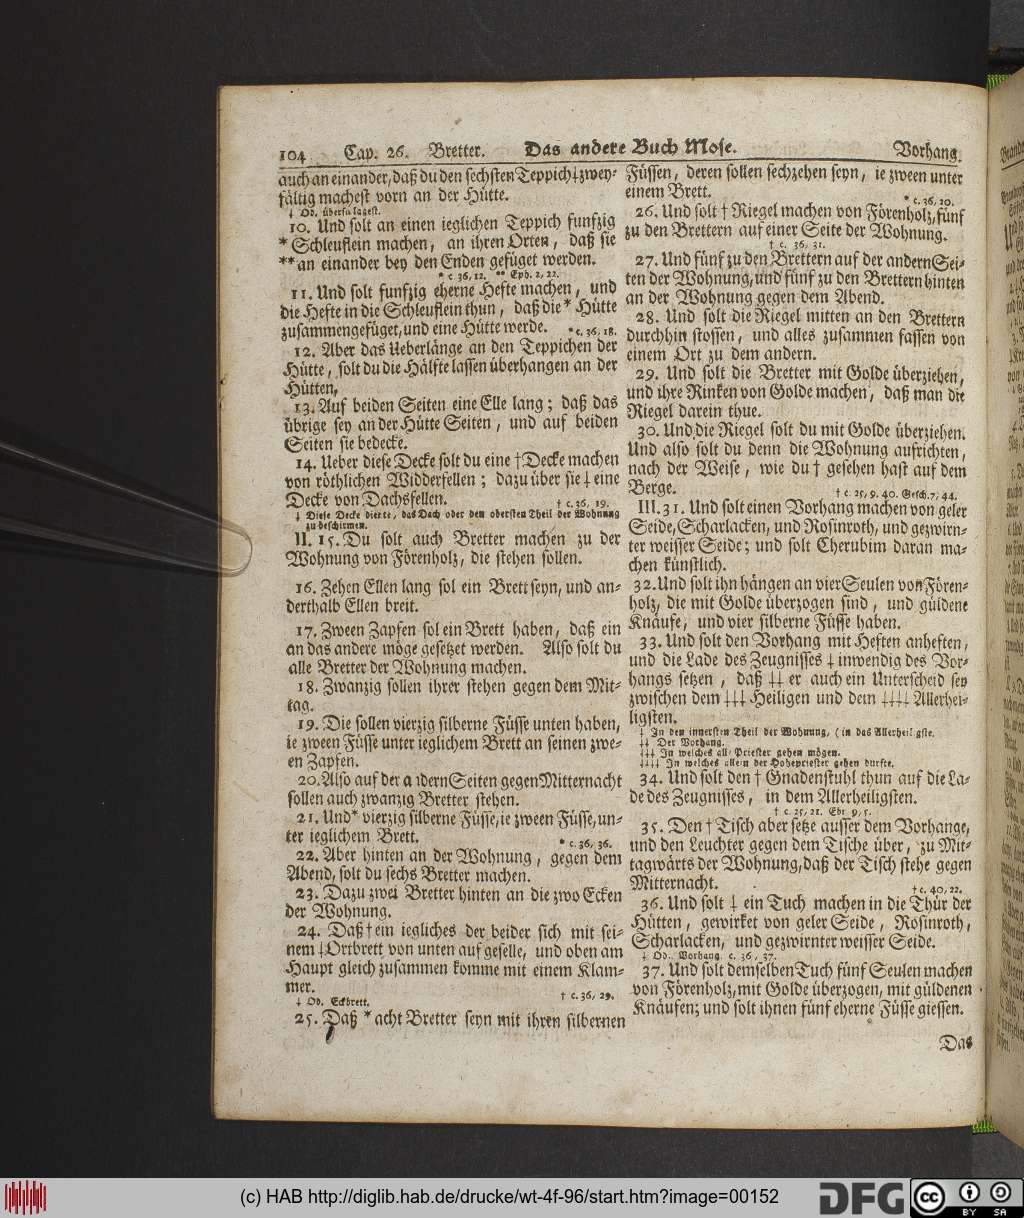 104 Cap. 26. Bretter. Das andere Buch Mose. Vorhang.
auch an einander, daß du den sechsten Teppich ‡ zwey-
fältig machest vorn an der Hütte.
‡ Od. überschlagest.
10. Und solt an einen ieglichen Teppich funfzig
* Schleuflein machen, an ihren Orten, daß sie
** an einander bey den Enden gefüget werden.
* c 36, 12. ** Eph. 2, 22.
11. Und solt funfzig eherne Hefte machen, und
die Hefte in die Schleuflein thun, daß die * Hütte
zusammengefüget, und eine Hütte werde. * c. 36, 18.
12. Aber das Ueberlänge an den Teppichen der
Hütte, solt du die Hälfte lassen überhangen an der
Hütten,
13. Auf beiden Seiten eine Elle lang; daß das
übrige sey an der Hütte Seiten, und auf beiden
Seiten sie bedecke.
14. Ueber diese Decke solt du eine † Decke machen
von röthlichen Widderfellen; dazu über sie ‡ eine
Decke von Dachsfellen. † c. 36, 19.
‡ Diese Decke diente, das Dach oder den obersten Theil der Wohnung
zu beschirmen.
II. 15. Du solt auch Bretter machen zu der
Wohnung von Förenholz, die stehen sollen.
16. Zehen Ellen lang sol ein Brett seyn, und an-
derthalb Ellen breit.
17. Zween Zapfen sol ein Brett haben, daß ein
an das andere möge gesetzet werden. Also solt du
alle Bretter der Wohnung machen.
18. Zwanzig sollen ihrer stehen gegen dem Mit-
tag.
19. Die sollen vierzig silberne Füsse unten haben,
ie zween Füsse unter ieglichem Brett an seinen zwe-
en Zapfen.
20. Also auf der andern Seiten gegen Mitternacht
sollen auch zwanzig Bretter stehen.
21. Und * vierzig silberne Füsse, ie zween Füsse, un-
ter ieglichem Brett. * c. 36, 36.
22. Aber hinten an der Wohnung, gegen dem
Abend, solt du sechs Bretter machen.
23. Dazu zwei Bretter hinten an die zwo Ecken
der Wohnung.
24. Daß † ein iegliches der beider sich mit sei-
nem ‡ Ortbrett von unten auf geselle, und oben am
Haupt gleich zusammen komme mit einem Klam-
mer. † c. 36, 29.
‡ Od. Eckbrett.
25. Daß * acht Bretter seyn mit ihren silbernen
Füssen, deren sollen sechzehen seyn, ie zween unter
einem Brett. * c. 36, 30.
26. Und solt † Riegel machen von Förenholz, fünf
zu den Brettern auf einer Seite der Wohnung.
† c. 36, 31.
27. Und fünf zu den Brettern auf der andern Sei-
ten der Wohnung, und fünf zu den Brettern hinten
an der Wohnung gegen dem Abend.
28. Und solt die Riegel mitten an den Brettern
durchhin stossen, und alles zusammen fassen von
einem Ort zu dem andern.
29. Und solt die Bretter mit Golde überziehen,
und ihre Rinken von Golde machen, daß man die
Riegel darein thue.
30. Und die Riegel solt du mit Golde überziehen.
Und also solt du denn die Wohnung aufrichten,
nach der Weise, wie du † gesehen hast auf dem
Berge. † c. 25, 9. 40. Gesch. 7, 44.
III. 31. Und solt einen Vorhang machen von geler
Seide, Scharlacken, und Rosinroth, und gezwirn-
ter weisser Seide; und solt Cherubim daran ma-
chen künstlich.
32. Und solt ihn hängen an vier Seulen von Fören-
holz, die mit Golde überzogen sind, und güldene
Knäufe, und vier silberne Füsse haben.
33. Und solt den Vorhang mit Heften anheften,
und die Lade des Zeugnisses ‡ inwendig des Vor-
hangs setzen, daß ‡‡ er auch ein Unterscheid sey
zwischen dem ‡‡‡ Heiligen und dem ‡‡‡‡ Allerhei-
ligsten.
‡ In den innersten Theil der Wohnung, (in das Allerheiligste.
‡‡ Der Vorhang.
‡‡‡ In welches alle Priester gehen mögen.
‡‡‡‡ In welches allein der Hohepriester gehen durfte.
34. Und solt den † Gnadenstuhl thun auf die La-
de des Zeugnisses, in dem Allerheiligsten.
† c. 25, 21. Ebr 9, 5.
35. Den † Tisch aber setze ausser dem Vorhange,
und den Leuchter gegen dem Tische über, zu Mit-
tagwärts der Wohnung, daß der Tisch stehe gegen
Mitternacht. † c. 40, 22.
36. Und solt ‡ ein Tuch machen in die Thür der
Hütten, gewirket von geler Seide, Rosinroth,
Scharlacken, und gezwirnter weisser Seide.
‡ Od. Vorhang. c. 36, 37.
37. Und solt demselben Tuch fünf Seulen machen
von Förenholz, mit Golde überzogen, mit güldenen
Knäufen; und solt ihnen fünf eherne Füsse giessen.
Das
(c) HAB http://diglib.hab.de/drucke/wt-4f-96/start.htm?image=00152
DFG
cc BY SA